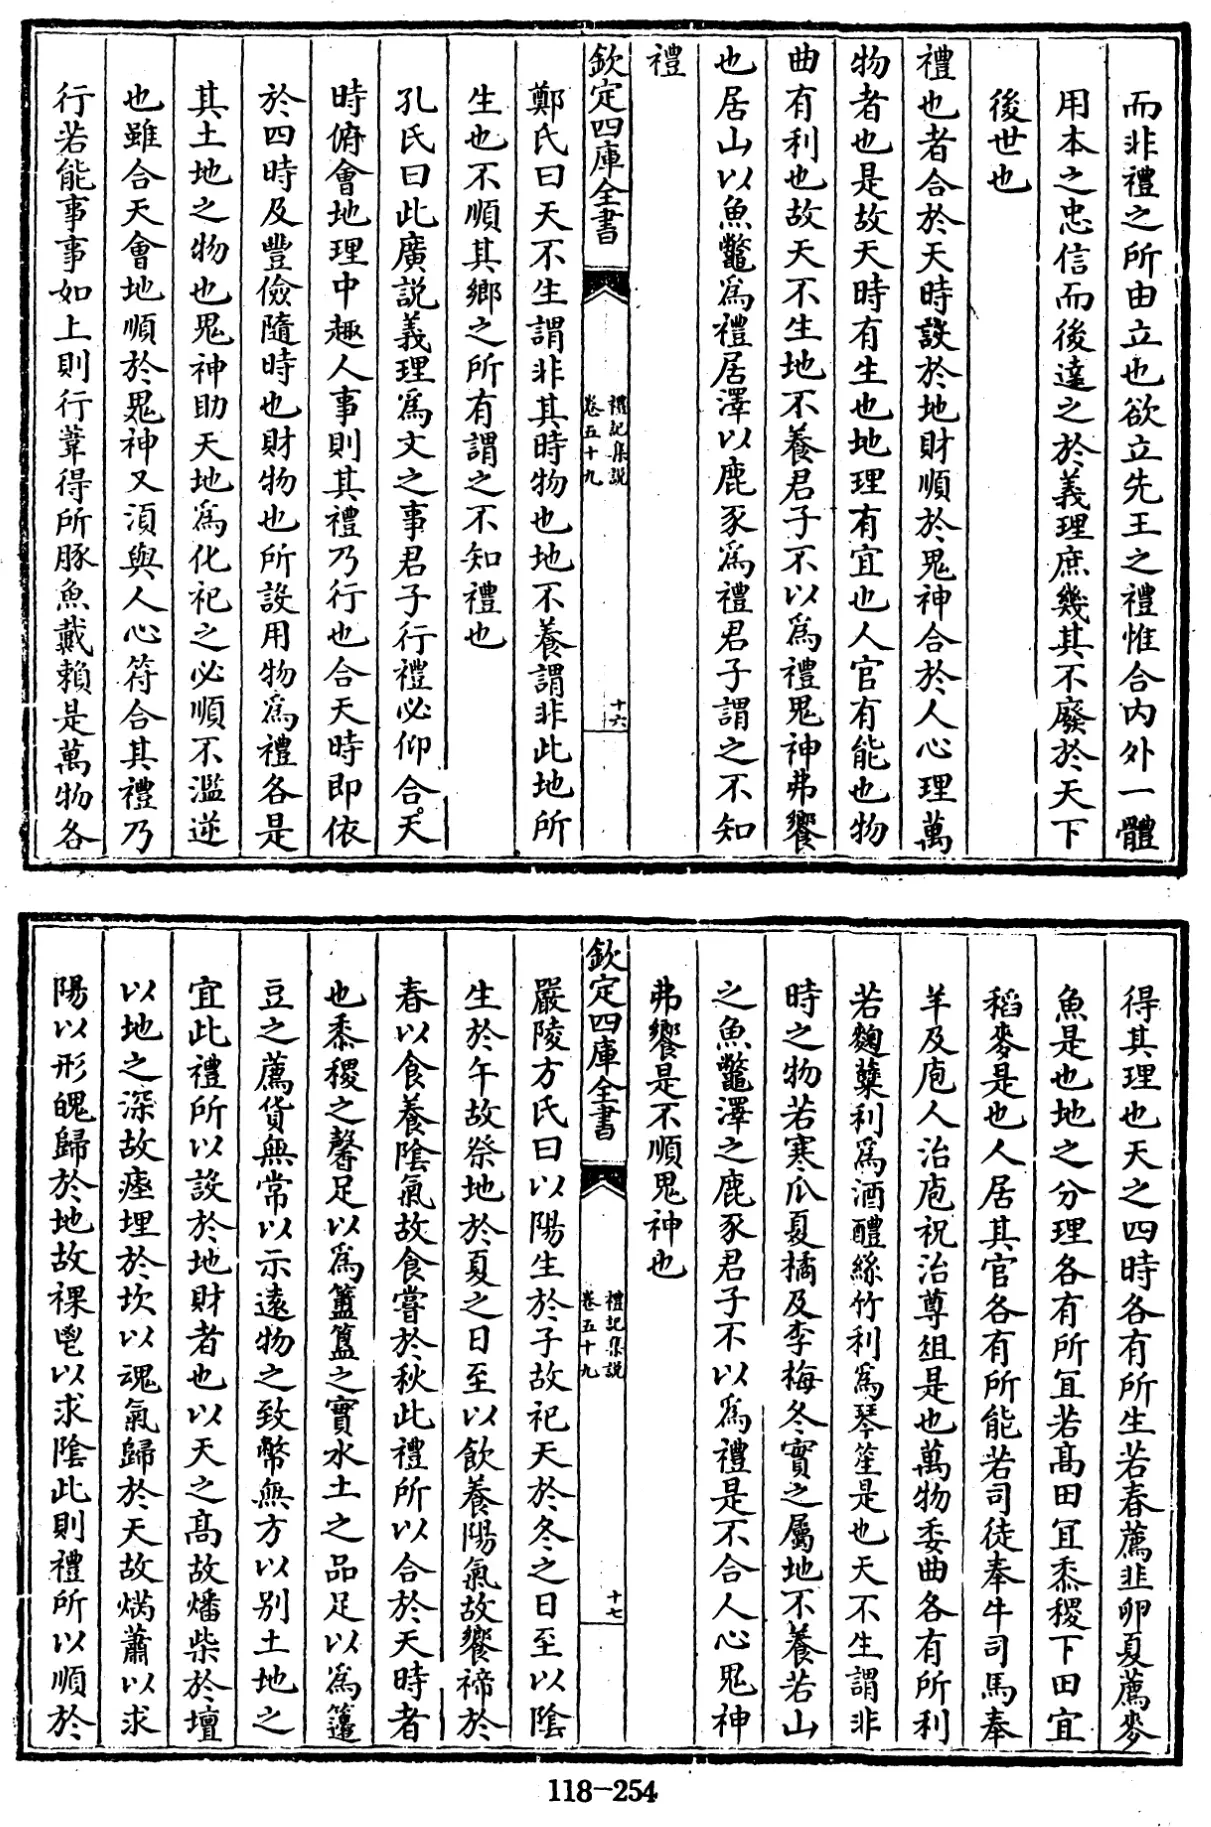 而非禮之所由立也欲立先王之禮惟合内外一體
用本之忠信而後達之於義理庶幾其不廢於天下
後世也
禮也者合於天時設於地財順於鬼神合於人心理萬
物者也是故天時有生也地理有宜也人官有能也物
曲有利也故天不生地不養君子不以為禮鬼神弗饗
也居山以魚鼈為禮居澤以鹿豕為禮君子謂之不知
禮
欽定四庫全書
禮記集說
卷五十九
十六
鄭氏曰天不生謂非其時物也地不養謂非此地所
生也不順其鄉之所有謂之不知禮也
孔氏曰此廣説義理為文之事君子行禮必仰合天
時俯會地理中趣人事則其禮乃行也合天時即依
於四時及豐儉隨時也財物也所設用物為禮各是
其土地之物也鬼神助天地為化祀之必順不濫逆
也雖合天會地順於鬼神又須與人心符合其禮乃
行若能事事如上則行葦得所豚魚戴賴是萬物各
得其理也天之四時各有所生若春薦韭卵夏薦麥
魚是也地之分理各有所宜若高田宜黍稷下田宜
稻麥是也人居其官各有所能若司徒奉牛司馬奉
羊及庖人治庖祝治尊俎是也萬物委曲各有所利
若麴糱利為酒醴絲竹利為琴笙是也天不生謂非
時之物若寒瓜夏橘及李梅冬實之屬地不養若山
之魚鼈澤之鹿豕君子不以為禮是不合人心鬼神
弗饗是不順鬼神也
欽定四庫全書
禮記集說
卷五十九
十七
嚴陵方氏曰以陽生於子故祀天於冬之日至以陰
生於午故祭地於夏之日至以飲養陽氣故饗禘於
春以食養陰氣故食嘗於秋此禮所以合於天時者
也黍稷之馨足以為簠簋之實水土之品足以為籩
豆之薦貨無常以示遠物之致幣無方以别土地之
宜此禮所以設於地財者也以天之高故燔柴於壇
以地之深故瘞埋於坎以魂氣歸於天故焫蕭以求
陽以形魄歸於地故祼鬯以求陰此則禮所以順於
118-254